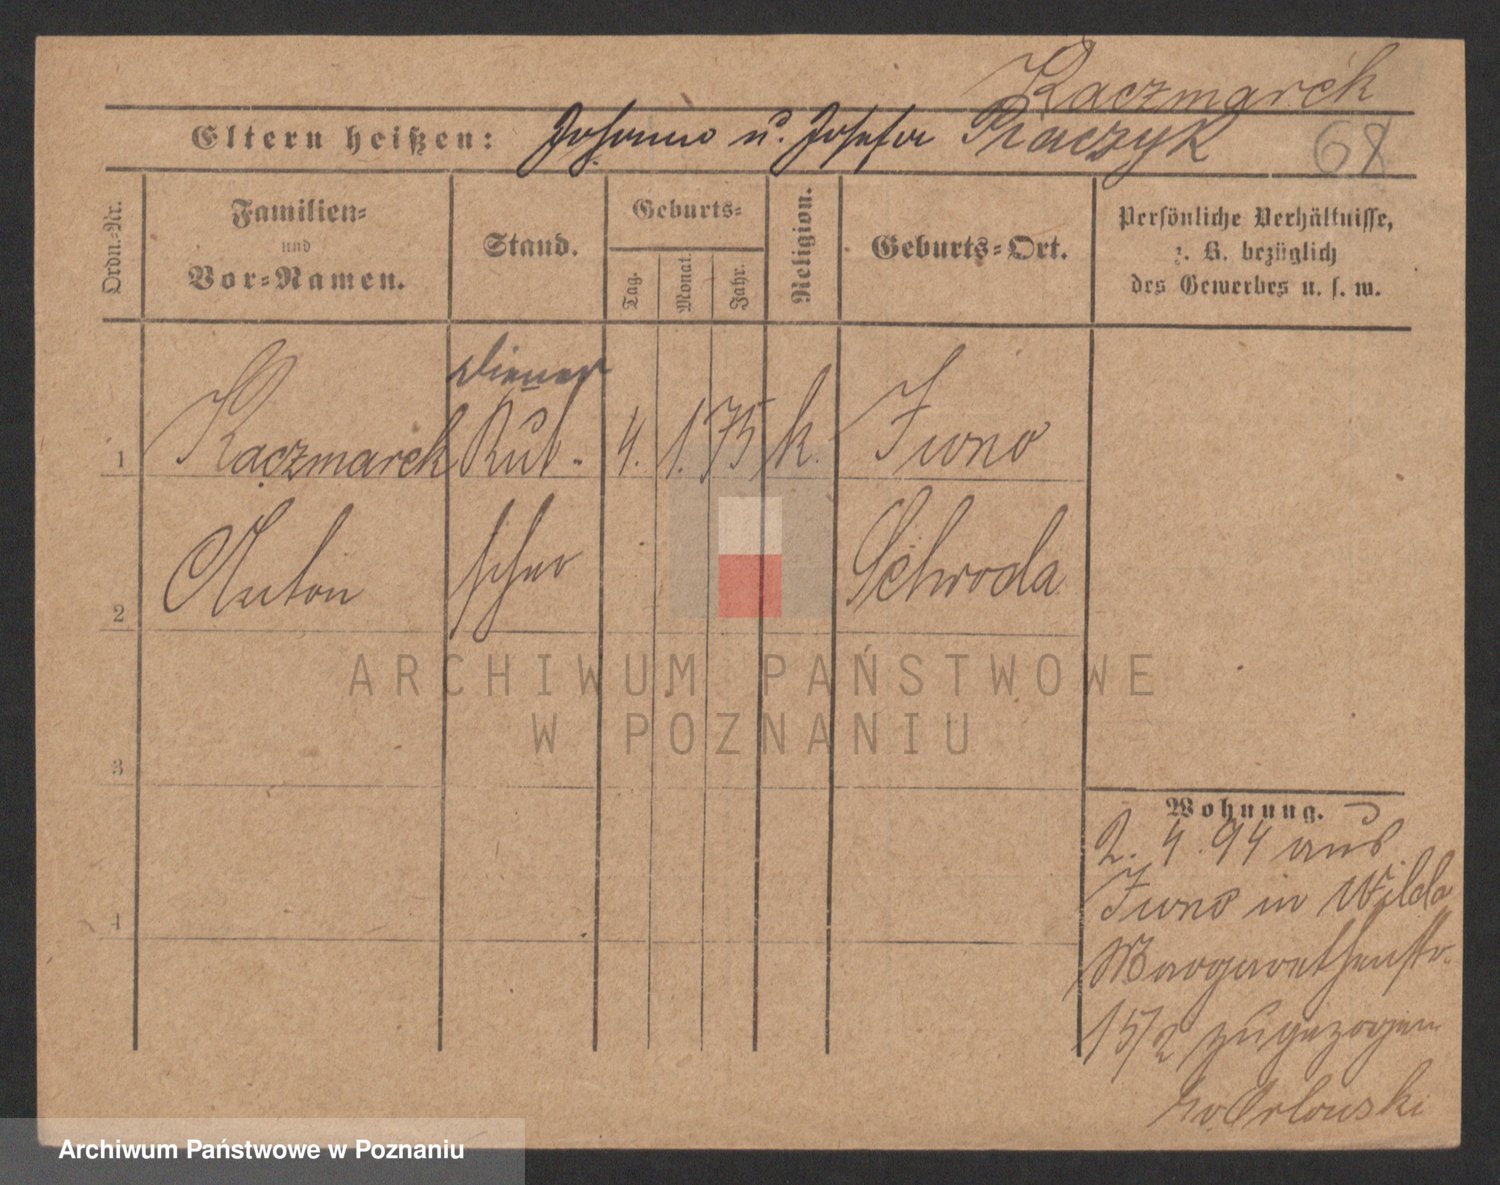 Kaczmarek
Eltern heißen: Johann u. Josefa Praczyk 68
Ordn.-Nr.
Familien-
und
Vor-Namen.
Stand.
Geburts-
Tag.
Monat.
Jahr.
Religion.
Geburts-Ort.
Persönliche Verhältnisse,
z. B. bezüglich
des Gewerbes u. s. w.
Diener
1 Kaczmarek Kut- 4. 1. 75 k. Iwno
2 Anton scher Schroda
3
4
Wohnung.
2. 4. 94 aus
Iwno in Wilda
Margarethenstr.
15/2 zugezogen
Orlowski
ARCHIWUM PAŃSTWOWE
W POZNANIU
Archiwum Państwowe w Poznaniu